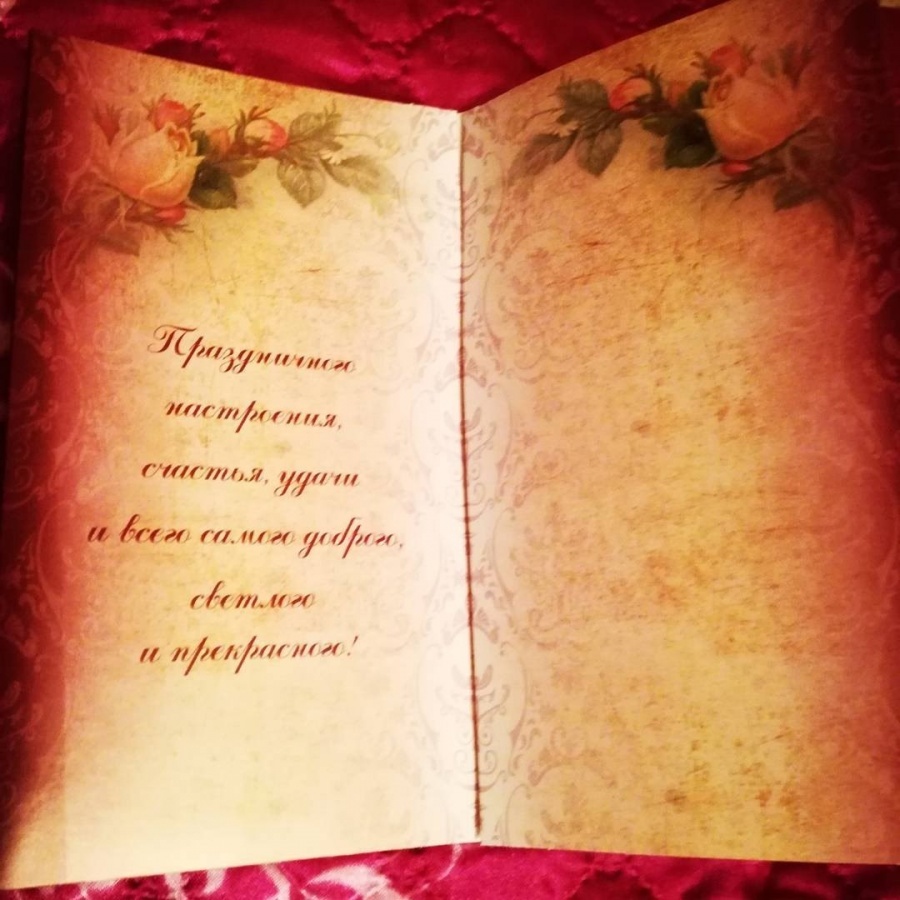 Праздничного
настроения,
счастья, удачи
и всего самого доброго,
светлого
и прекрасного!